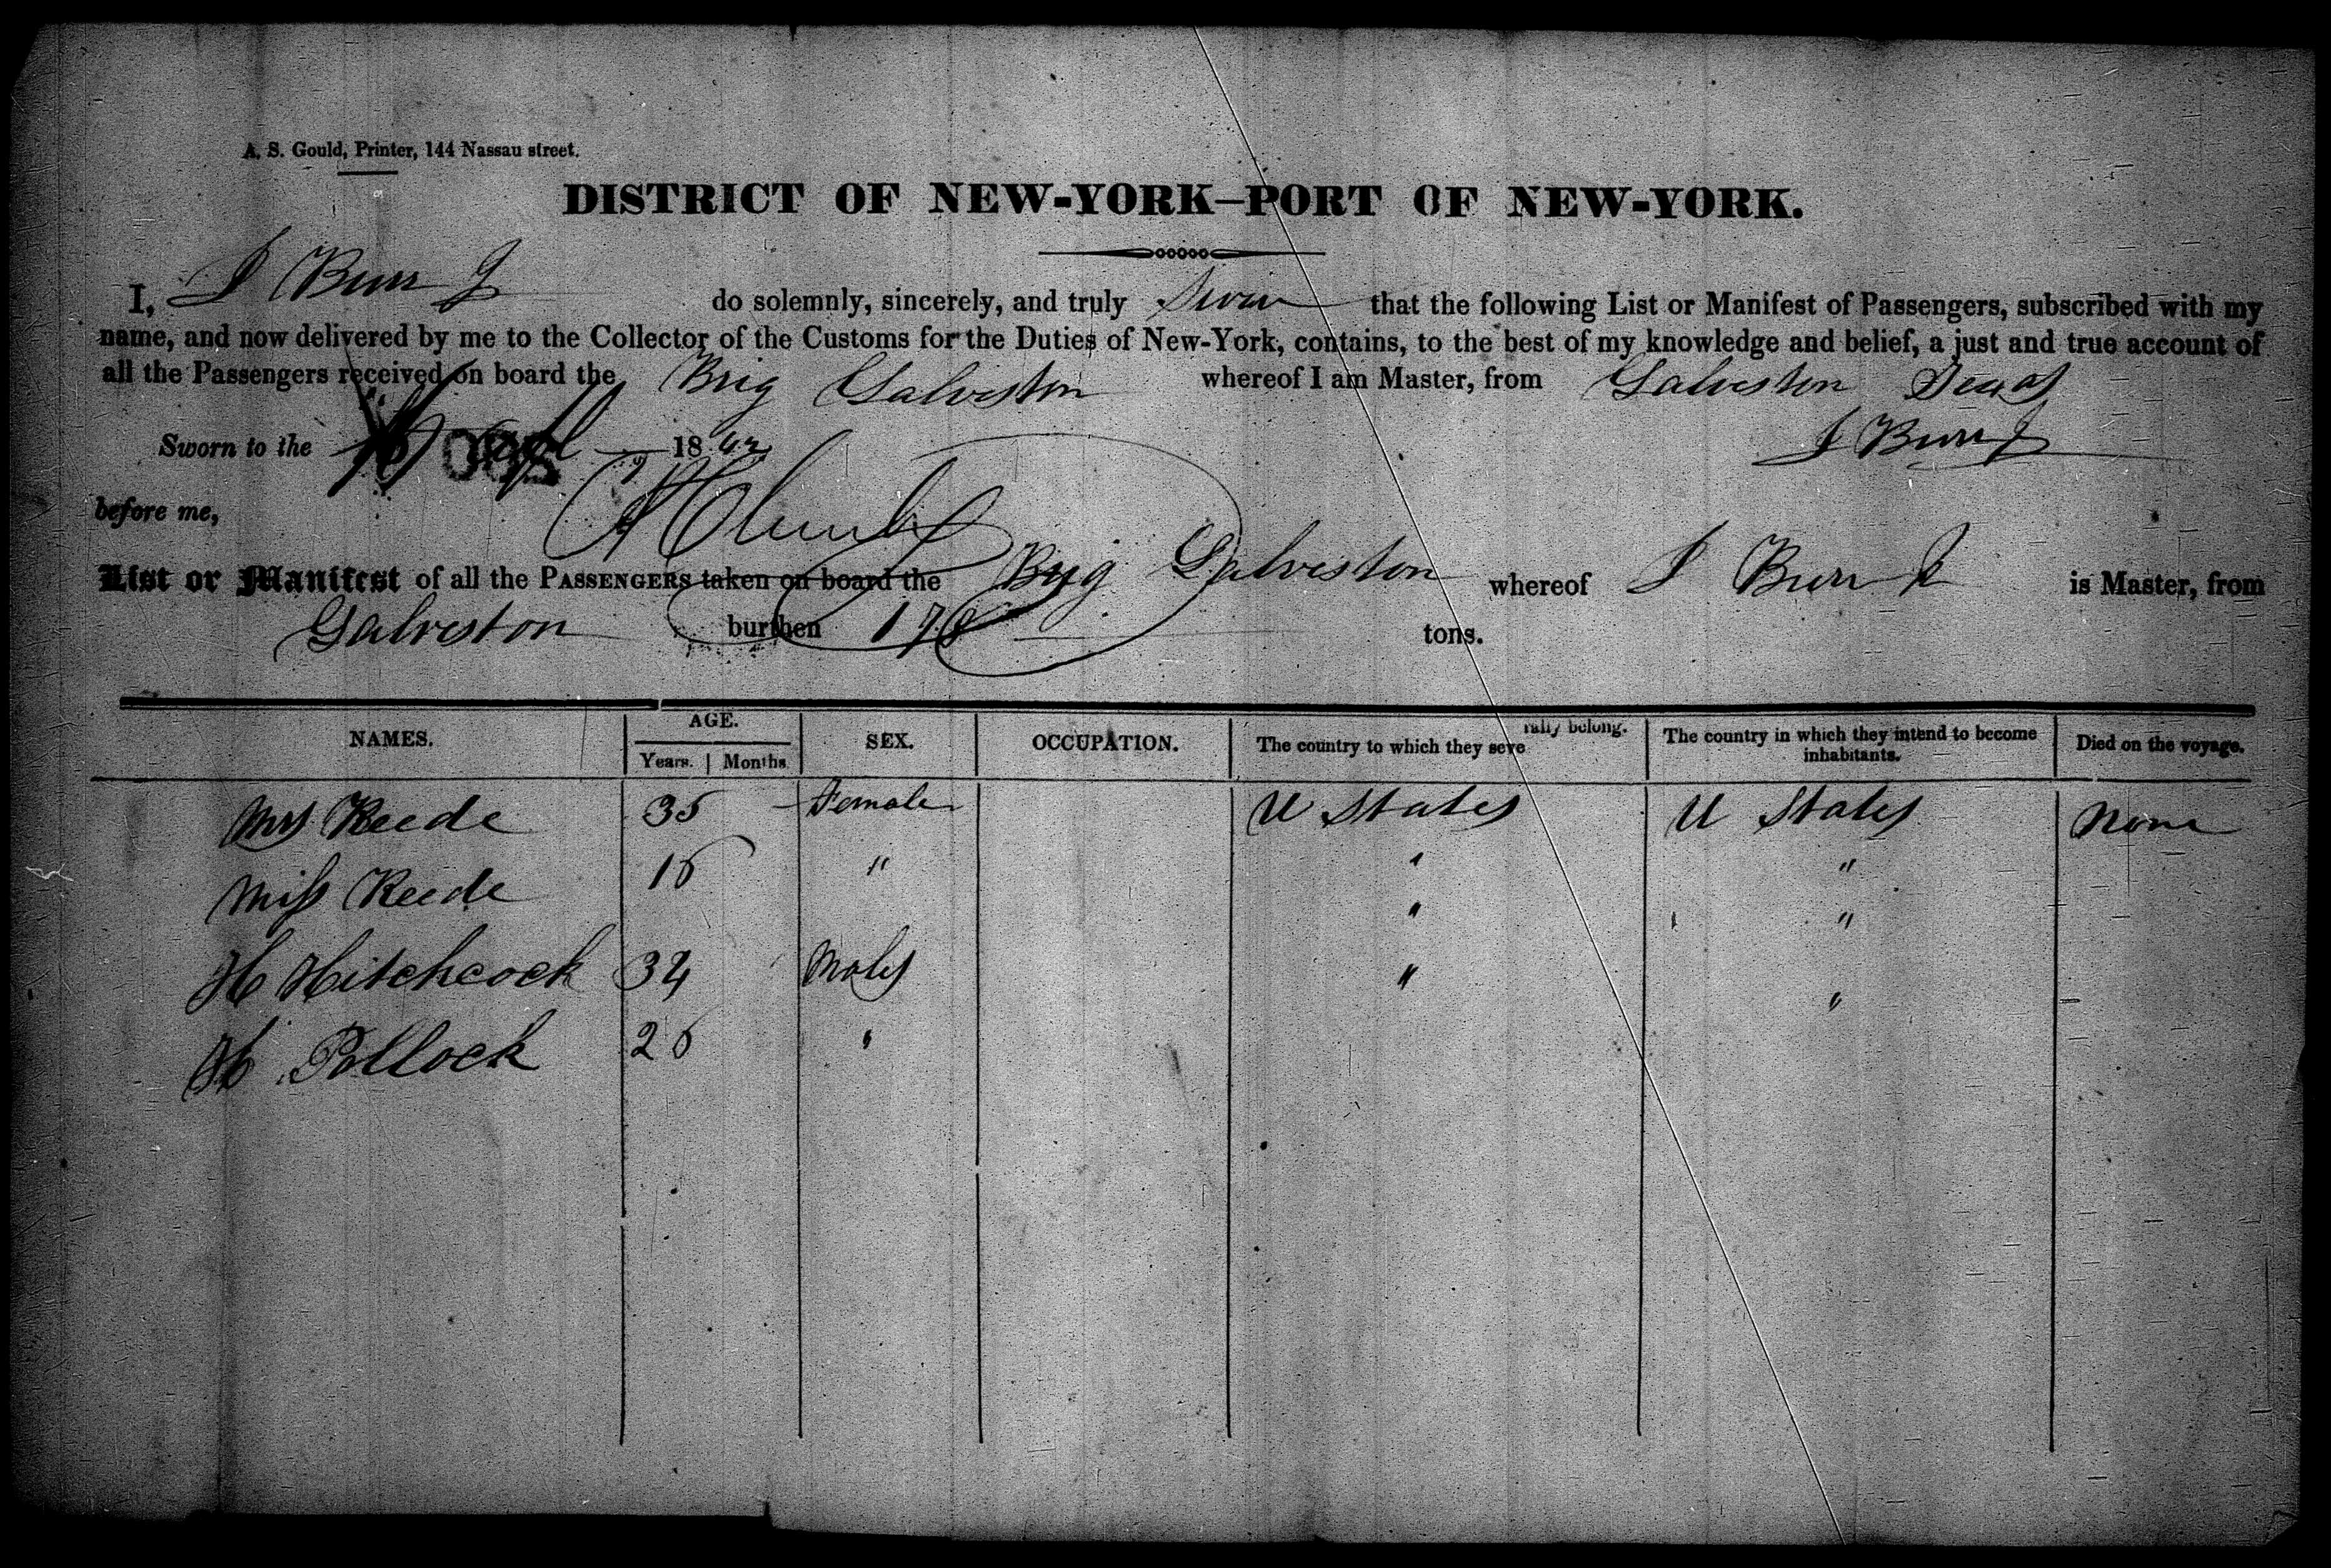 A. S. Gould, Printer, 144 Nassau street.
DISTRICT OF NEW-YORK—PORT OF NEW-YORK.
I, J Burr Jr do solemnly, sincerely, and truly Swear that the following List or Manifest of Passengers, subscribed with my
name, and now delivered by me to the Collector of the Customs for the Duties of New-York, contains, to the best of my knowledge and belief, a just and true account of
all the Passengers received on board the Brig Galveston whereof I am Master, from Galveston Texas
Sworn to the 18 42 J Burr Jr
before me,
List or Manifest of all the PASSENGERS taken on board the Brig Galveston whereof J Burr Jr is Master, from
Galveston burthen 178 tons.
NAMES. AGE. Years. Months SEX. OCCUPATION. The country to which they severally belong. The country in which they intend to become inhabitants. Died on the voyage.
Mrs Reede 35 Female U States U States None
Miss Reede 16 " " "
H Hitchcock 34 Males " "
H Pollock 26 " " "